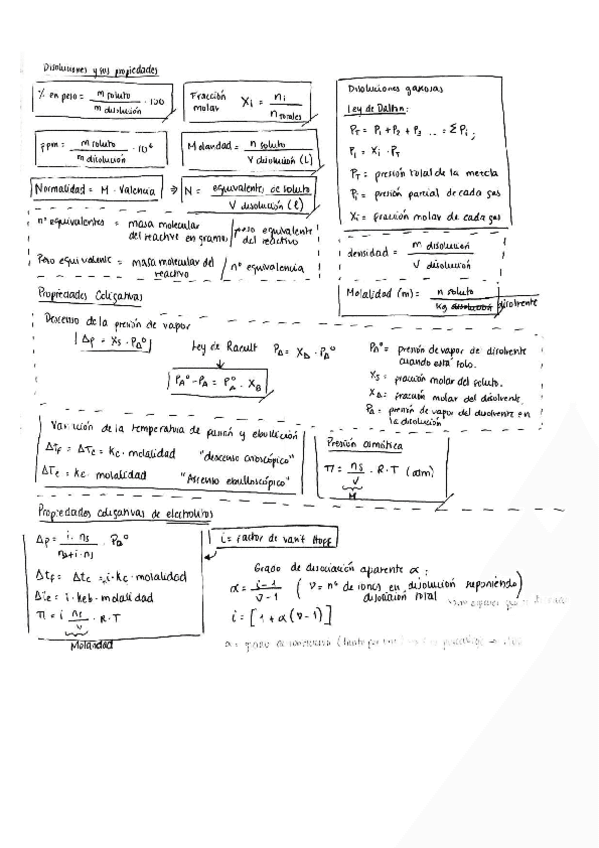 Disoluciones y sus propiedades
% en peso = m soluto / m disolución · 100
Fracción molar Xi = ni / n totales
ppm = m soluto / m disolución · 10⁶
Molaridad = n soluto / V disolución (L)
Normalidad = M · Valencia ⇒ N = equivalentes de soluto / V disolución (l)
nº equivalentes = masa molecular del reactivo en gramos / peso equivalente del reactivo
Peso equivalente = masa molecular del reactivo / nº equivalencia
Disoluciones gaseosas
Ley de Dalton:
PT = P1 + P2 + P3 ... = ΣPi
Pi = Xi · PT
PT = presión total de la mezcla
Pi = presión parcial de cada gas
Xi = fracción molar de cada gas
densidad = m disolución / V disolución
Molalidad (m) = n soluto / kg disolvente
Propiedades Coligativas
Descenso de la presión de vapor
Δp = Xs · PA⁰
Ley de Raoult PA = XA · PA⁰
PA⁰ - PA = PA⁰ · XB
PA⁰ = presión de vapor de disolvente cuando está solo.
Xs = fracción molar del soluto.
XA = fracción molar del disolvente.
PA = presión de vapor del disolvente en la disolución
Variación de la temperatura de fusión y ebullición
Δtf = ΔTc = Kc · molalidad "descenso crioscópico"
ΔTe = Ke · molalidad "Ascenso ebulloscópico"
Presión osmótica
π = ns / V · R · T (atm)
M
Propiedades coligativas de electrolitos
Δp = i · ns / ns + i · ns · PA⁰
Δtf = Δtc = i · Kc · molalidad
Δte = i · Keb · molalidad
π = i ns / V · R · T
Molaridad
i = factor de van't Hoff
Grado de disociación aparente α:
α = i - 1 / ν - 1 (ν = nº de iones en disolución suponiendo disolución total
i = [1 + α (ν - 1)]